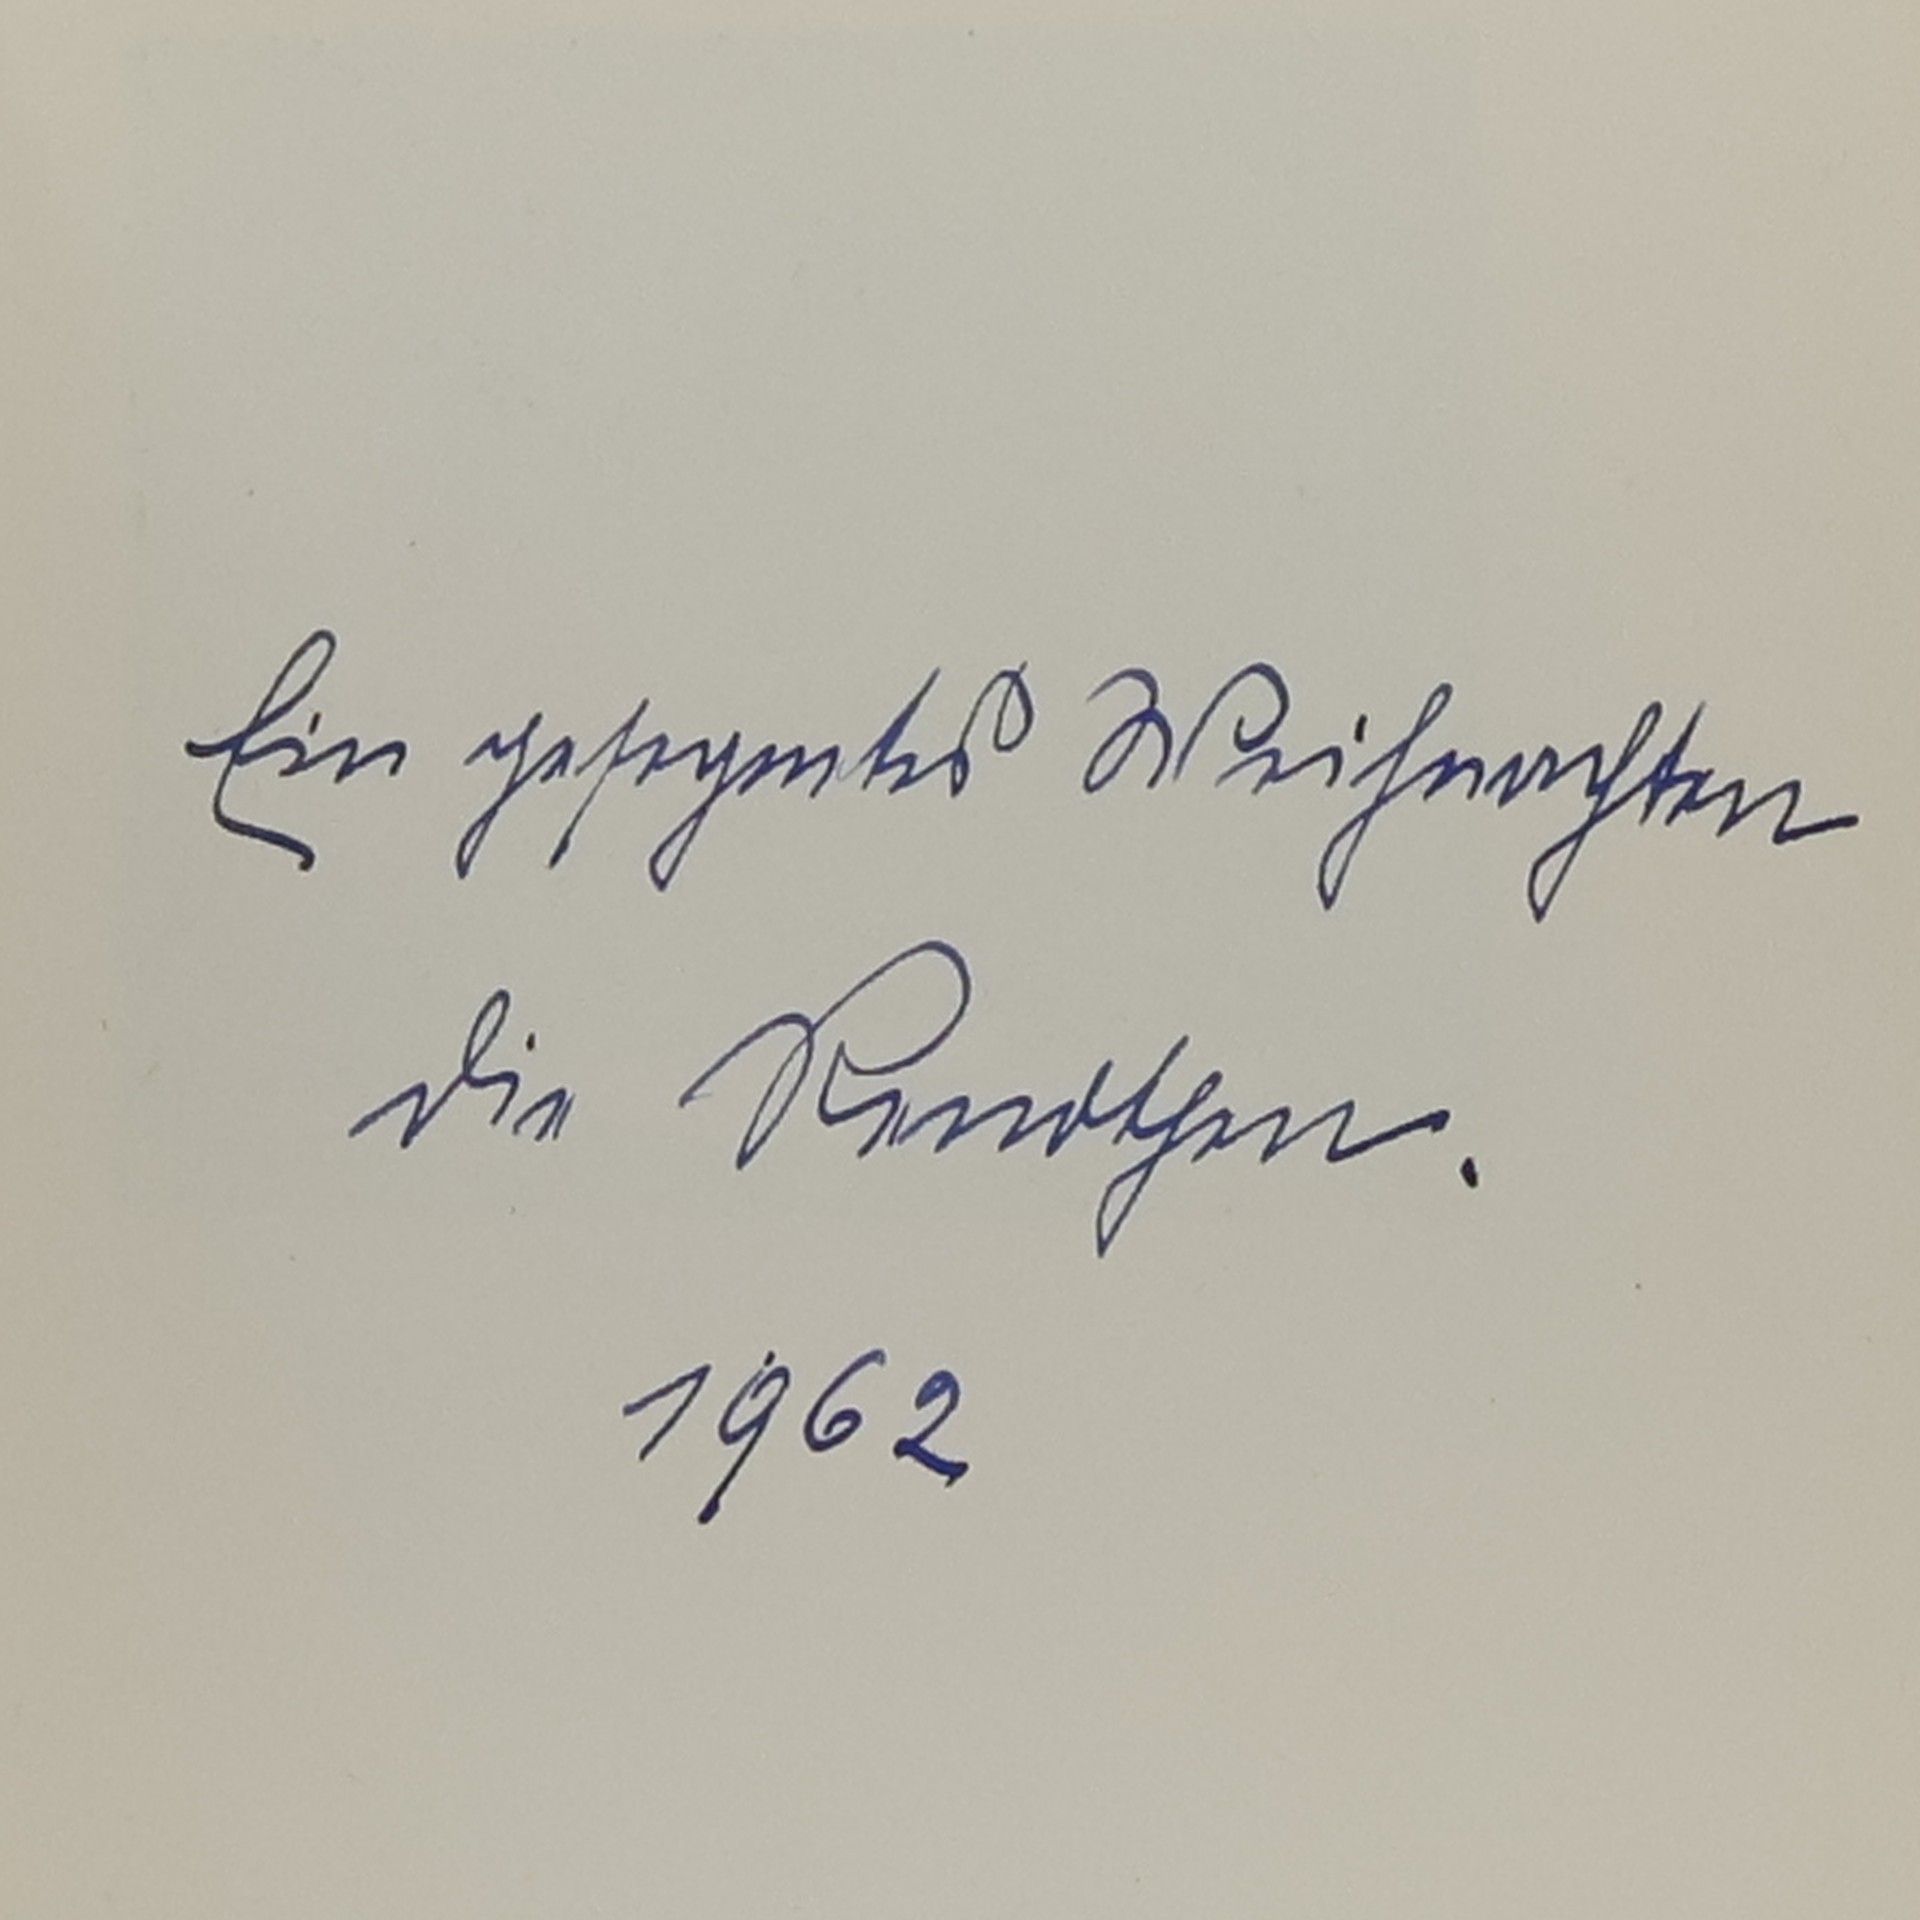 Ein gesegnetes Weihnachten
die
1962